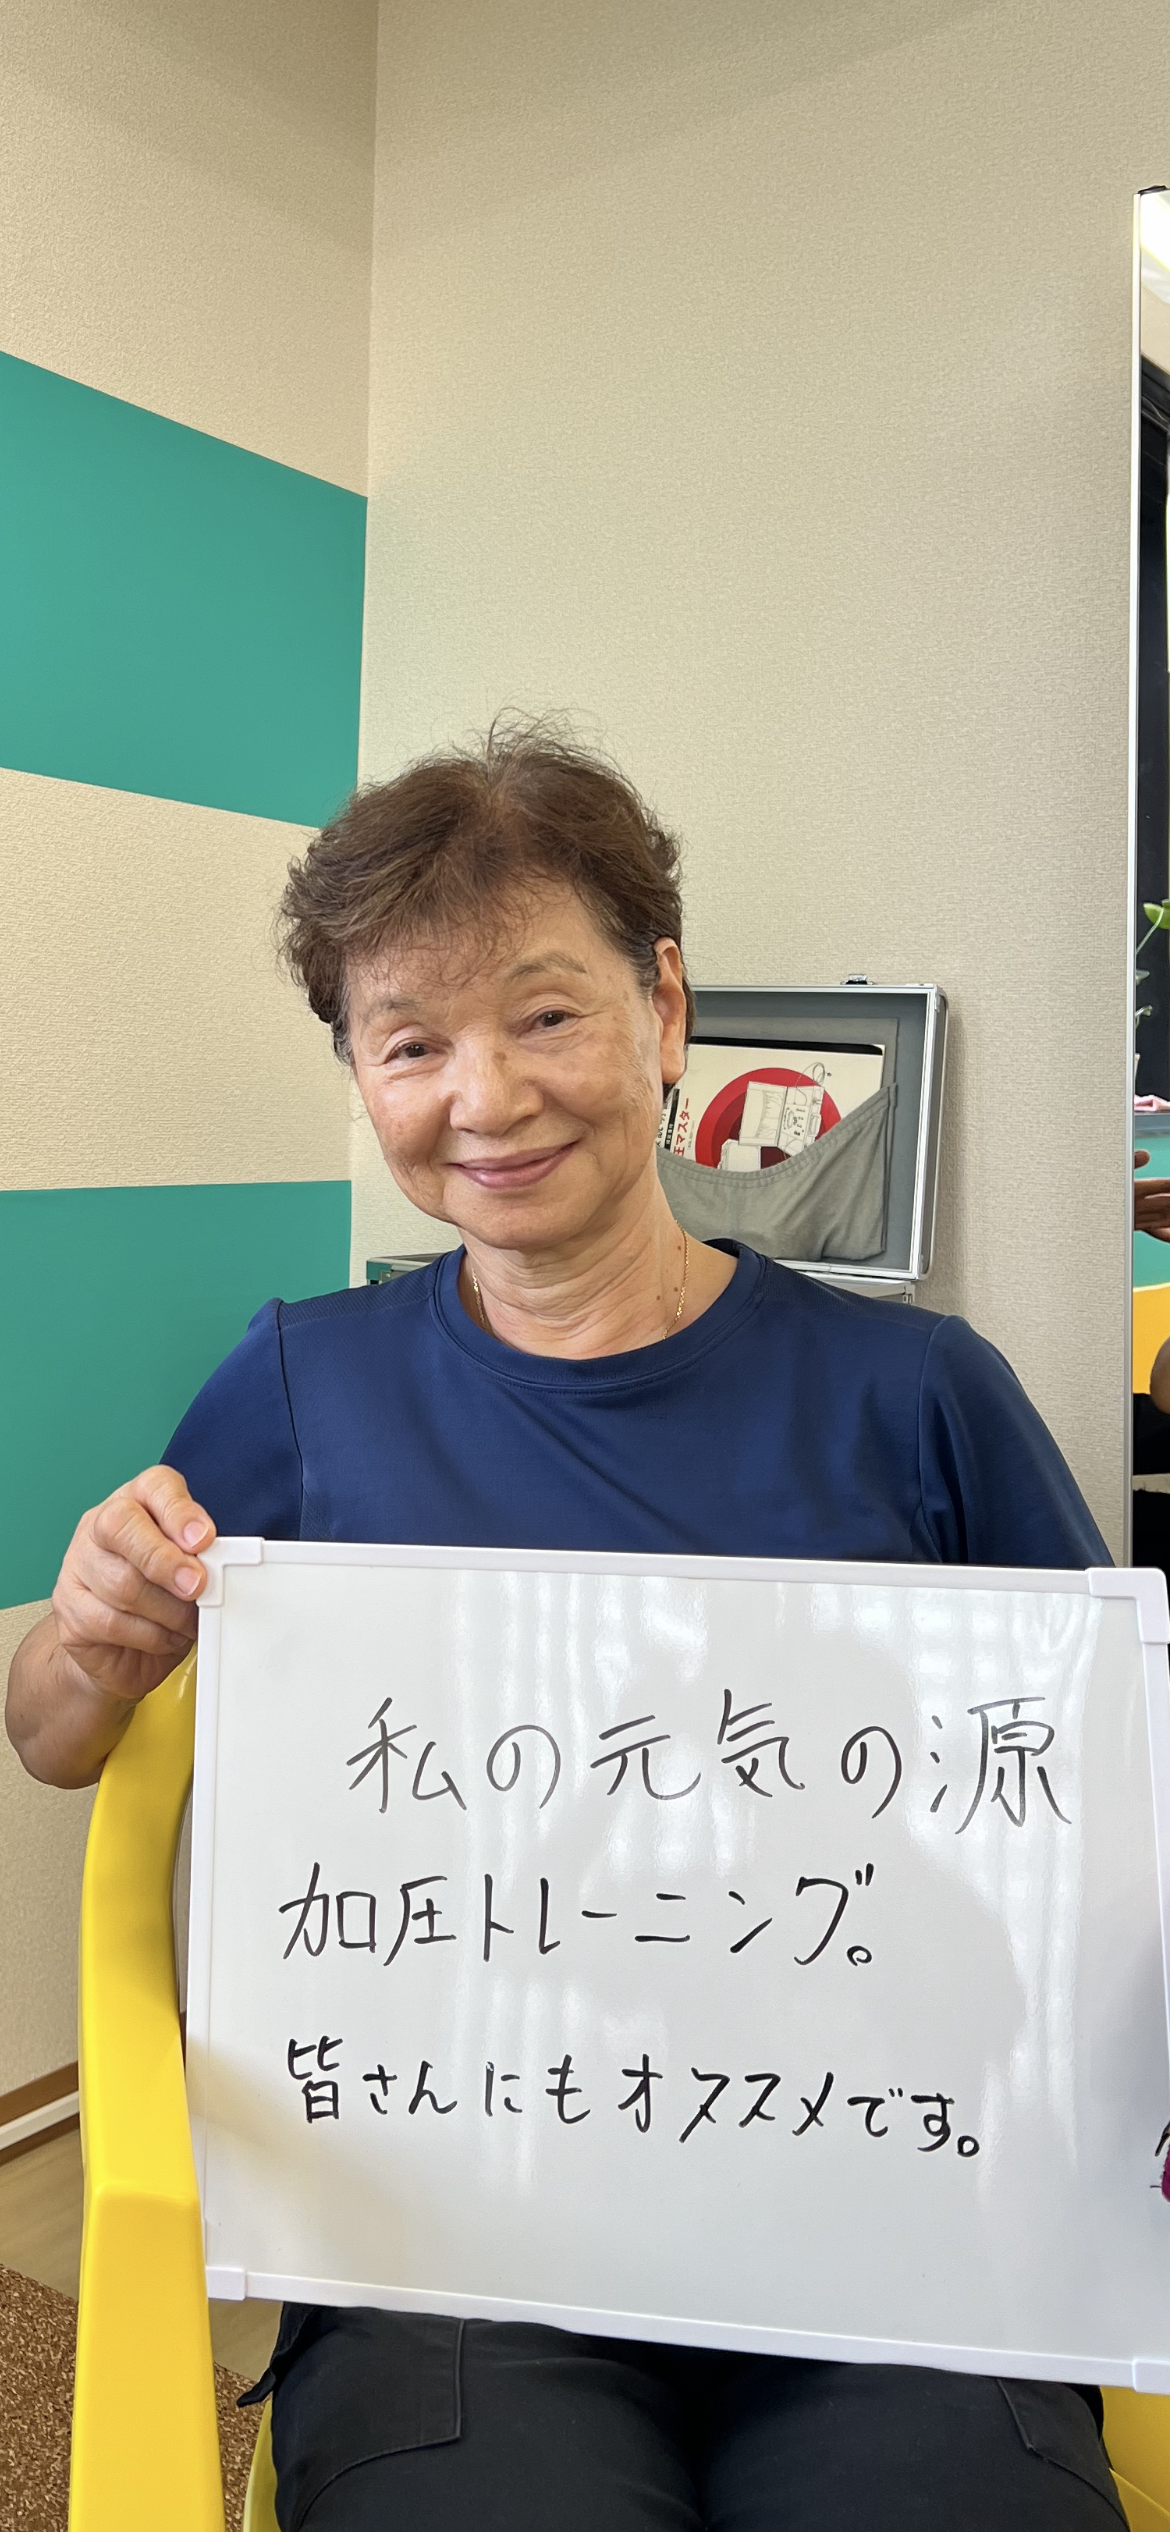 私の元気の源
加圧トレーニング。
皆さんにもオススメです。
圧マスター